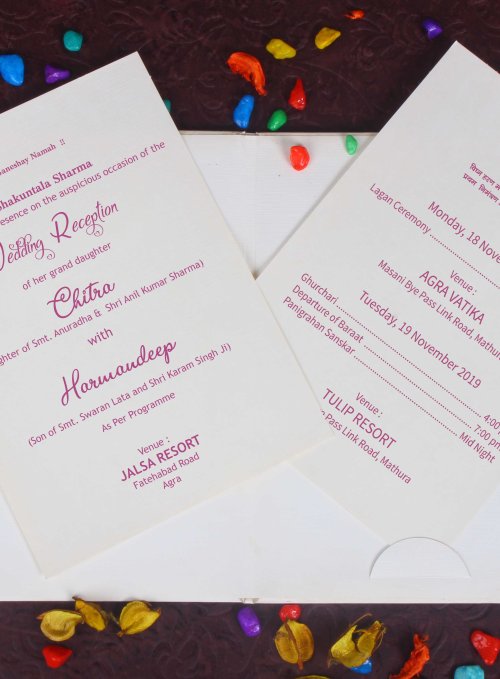 Namah !!
Shakuntala Sharma
on the auspicious occasion of the
Wedding Reception
of her grand daughter
Chitra
of Smt. Anuradha & Shri Anil Kumar Sharma)
with
Harmandeep
(Son of Smt. Swaran Lata and Shri Karam Singh Ji)
As Per Programme
Venue :
JALSA RESORT
Fatehabad Road
Agra
Monday, 18
Lagan Ceremony
Venue :
AGRA VATIKA
Masani Bye Pass Link Road,
Tuesday, 19 November 2019
Ghurchari
Departure of Baraat 4:00
Panigrahan Sanskar 7:00
Mid Night
Venue :
TULIP RESORT
Pass Link Road, Mathura